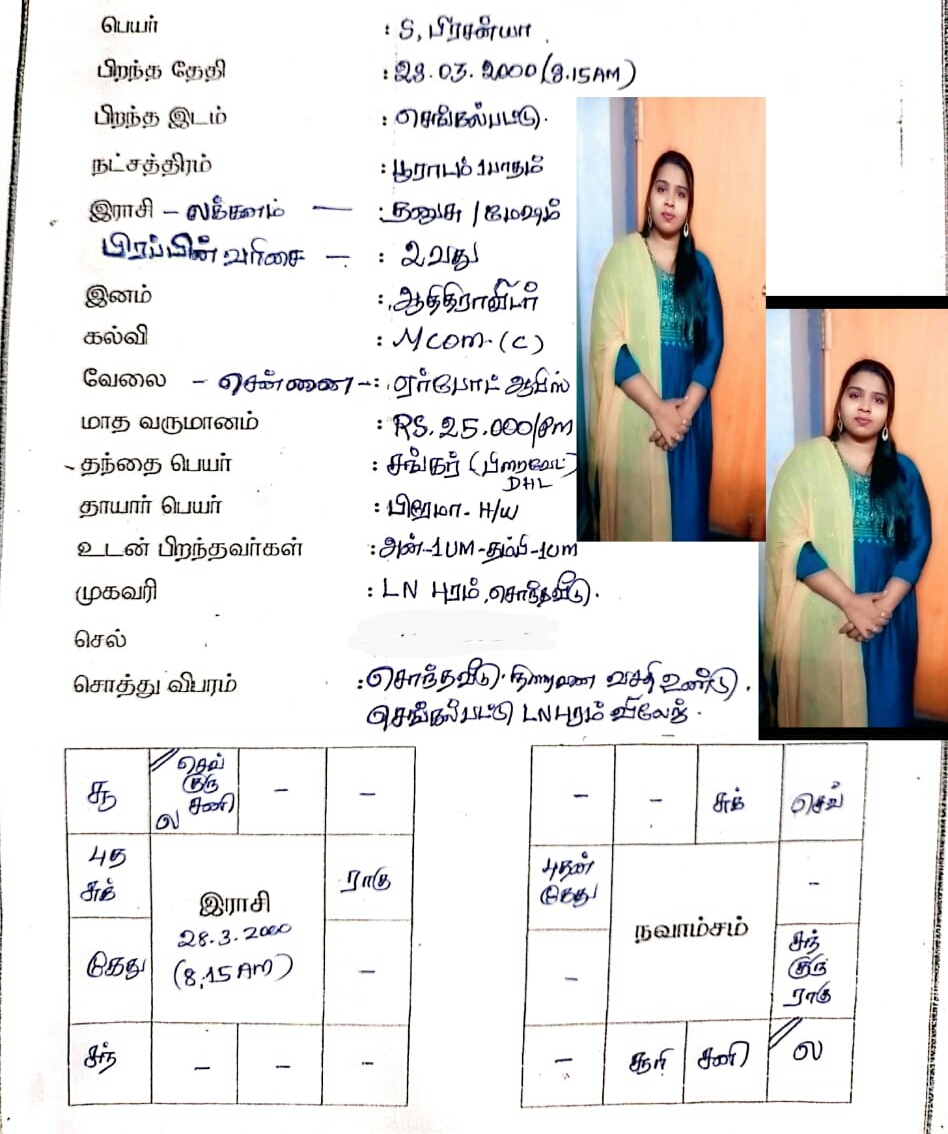 பெயர் : S. பிரசன்யா
பிறந்த தேதி : 28.03.2000 (8.15AM)
பிறந்த இடம் : செங்கல்பட்டு.
நட்சத்திரம் : பூராடம் 1பாதம்
இராசி – லக்கனம் — : தனுசு / மேஷம்
பிறப்பின் வரிசை – : 2வது
இனம் : ஆதிதிராவிடர்
கல்வி : M com. (C)
வேலை - சென்னை - : ஏர்போட் ஆபிஸ்
மாத வருமானம் : RS. 25.000/Pm
தந்தை பெயர் : சங்கர் (பிறைவேட்)
DHL
தாயார் பெயர் : பிரேமா - H/W
உடன் பிறந்தவர்கள் : அண்-1UM-தம்பி-1UM
முகவரி : LN புரம், சொந்தவீடு.
செல்
சொத்து விபரம் : சொந்தவீடு. நிறைவான வசதி உண்டு.
செங்கல்பட்டு LN புரம் வில்லேஜ்.
சூ செவ் குரு சனி ல – –
புத சுக் ராகு
இராசி
28.3.2000
(8.15 AM)
கேது –
சந் – – –
– – சுக் செவ்
புதன் கேது –
நவாம்சம்
– சந் குரு ராகு
– சூரி சனி ல